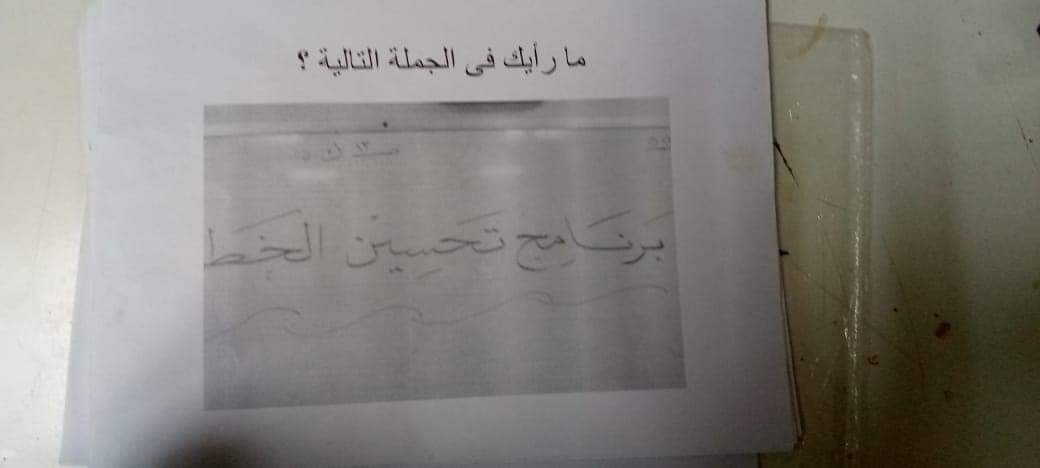 ما رأيك فى الجملة التالية ؟
بَرنَامِج تَحسِينْ الخَط